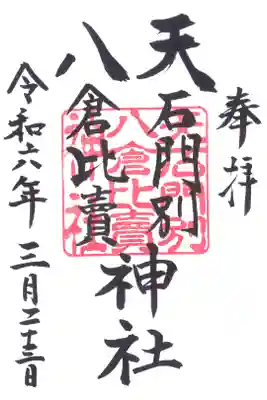 奉拝
天石門別
八倉比賣
神社
令和六年
三月二十三日
八倉比賣